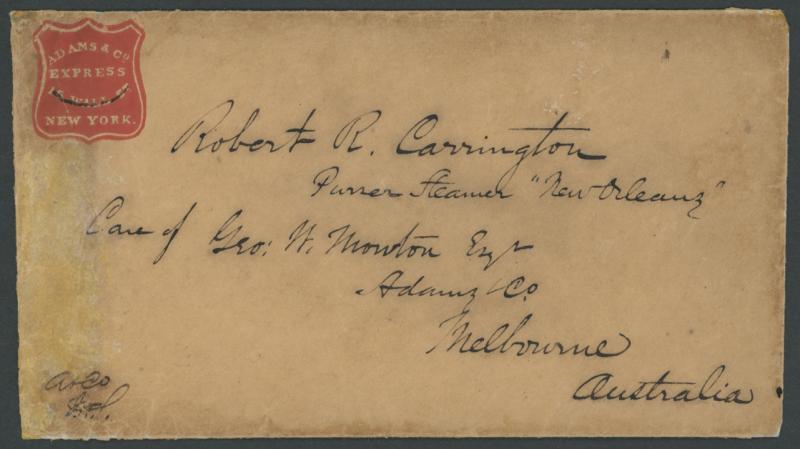 ADAMS & Co
EXPRESS
16 WALL ST
NEW YORK.
Robert R. Carrington
Purser Steamer "New Orleans"
Care of Geo: W. Mowton Esqr
Adams & Co
Melbourne
Australia
A & Co